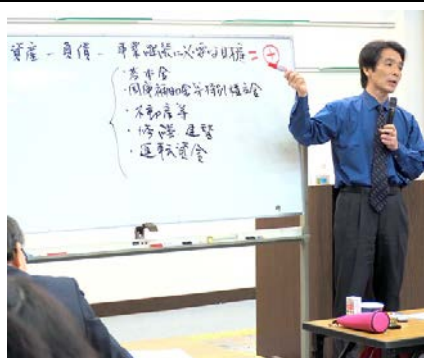 資産 - 負債 - 事業継続に必要な財産 = ⊕
・基本金
・国庫補助金等特別積立金
・不動産等
・修繕 建替
・運転資金